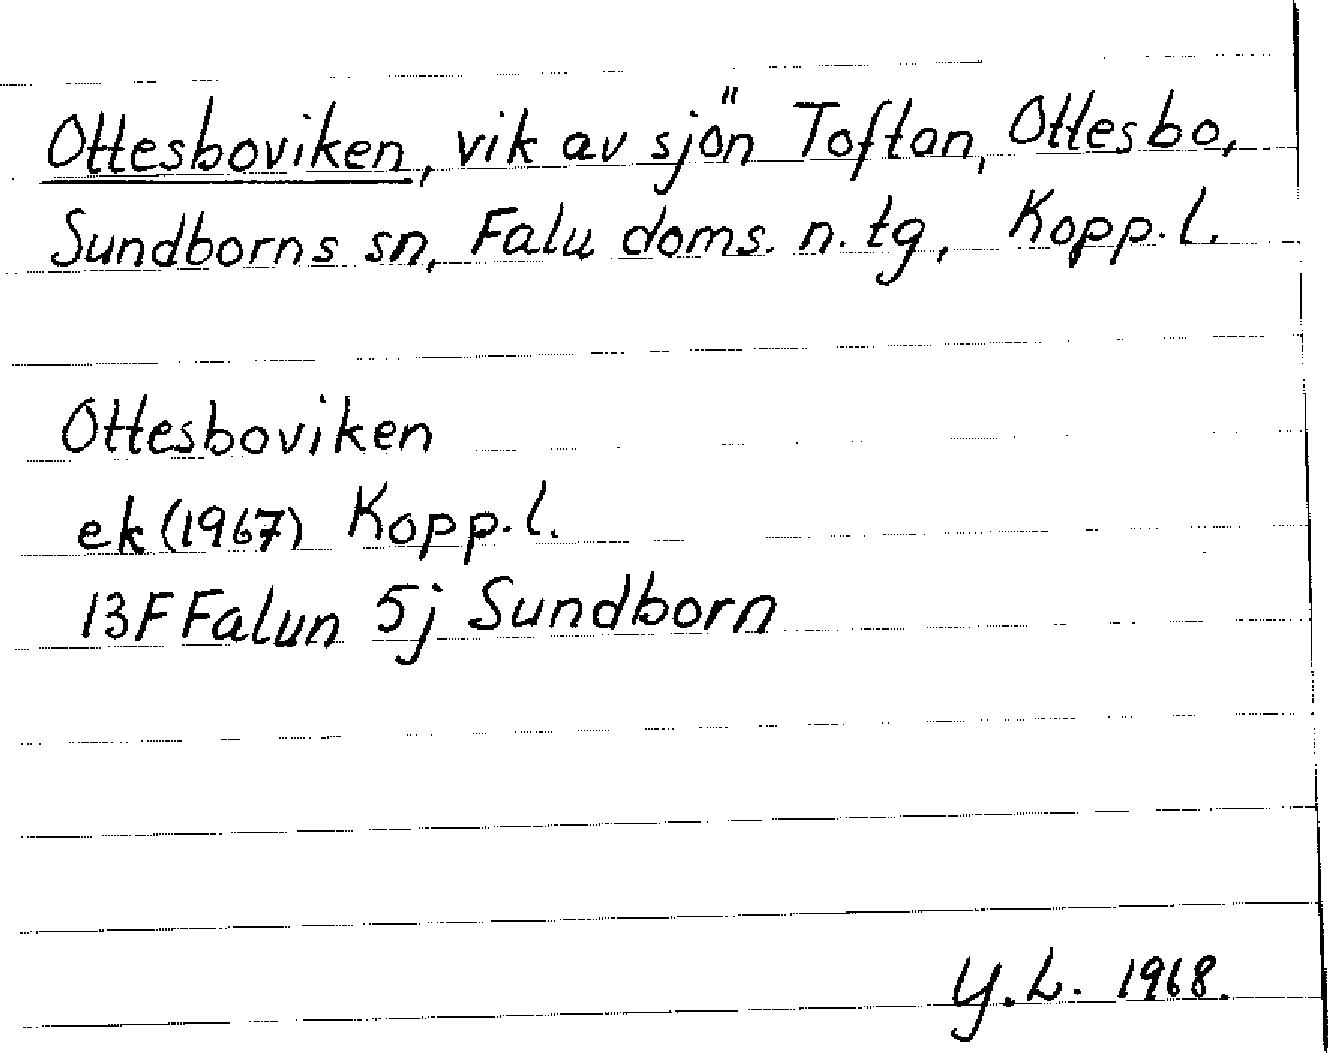 Ottesboviken, vik av sjön Toftan, Ottesbo,
Sundborns sn, Falu doms. n. tg, Kopp. l.
Ottesboviken
ek (1967) Kopp. l.
13F Falun 5j Sundborn
Y.L. 1968.